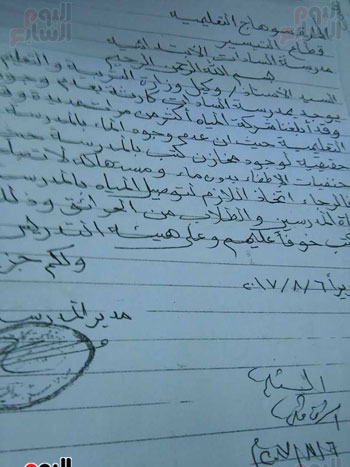 اليوم السابع
سوهاج التعليمية
قطاع التيسير
مدرسة السادات الابتدائية
بسم الله الرحمن الرحيم
السيد الأستاذ / وكيل وزارة التربية والتعليم
يوجد بمدرسة السادات كارثة بعدم وجود
وقد أبلغنا شركة المياه أكثر من مرات عديدة
التعليمية حيث أن عدم وجود الماء بالمدرسة
حقيقية لوجود مخازن كتب بالمدرسة حيث
حنفيات الإطفاء بدون ماء ومستهلكة لا
فالرجاء اتخاذ اللازم لتوصيل المياه بالمدرسة
المدرسين والطلاب من الحرائق وذلك
خوفا عليهم وعلى هيئة التدريس
ولكم جزيل
٢٠١٧/٨/٦
مدير المدرسة
اليوم السابع